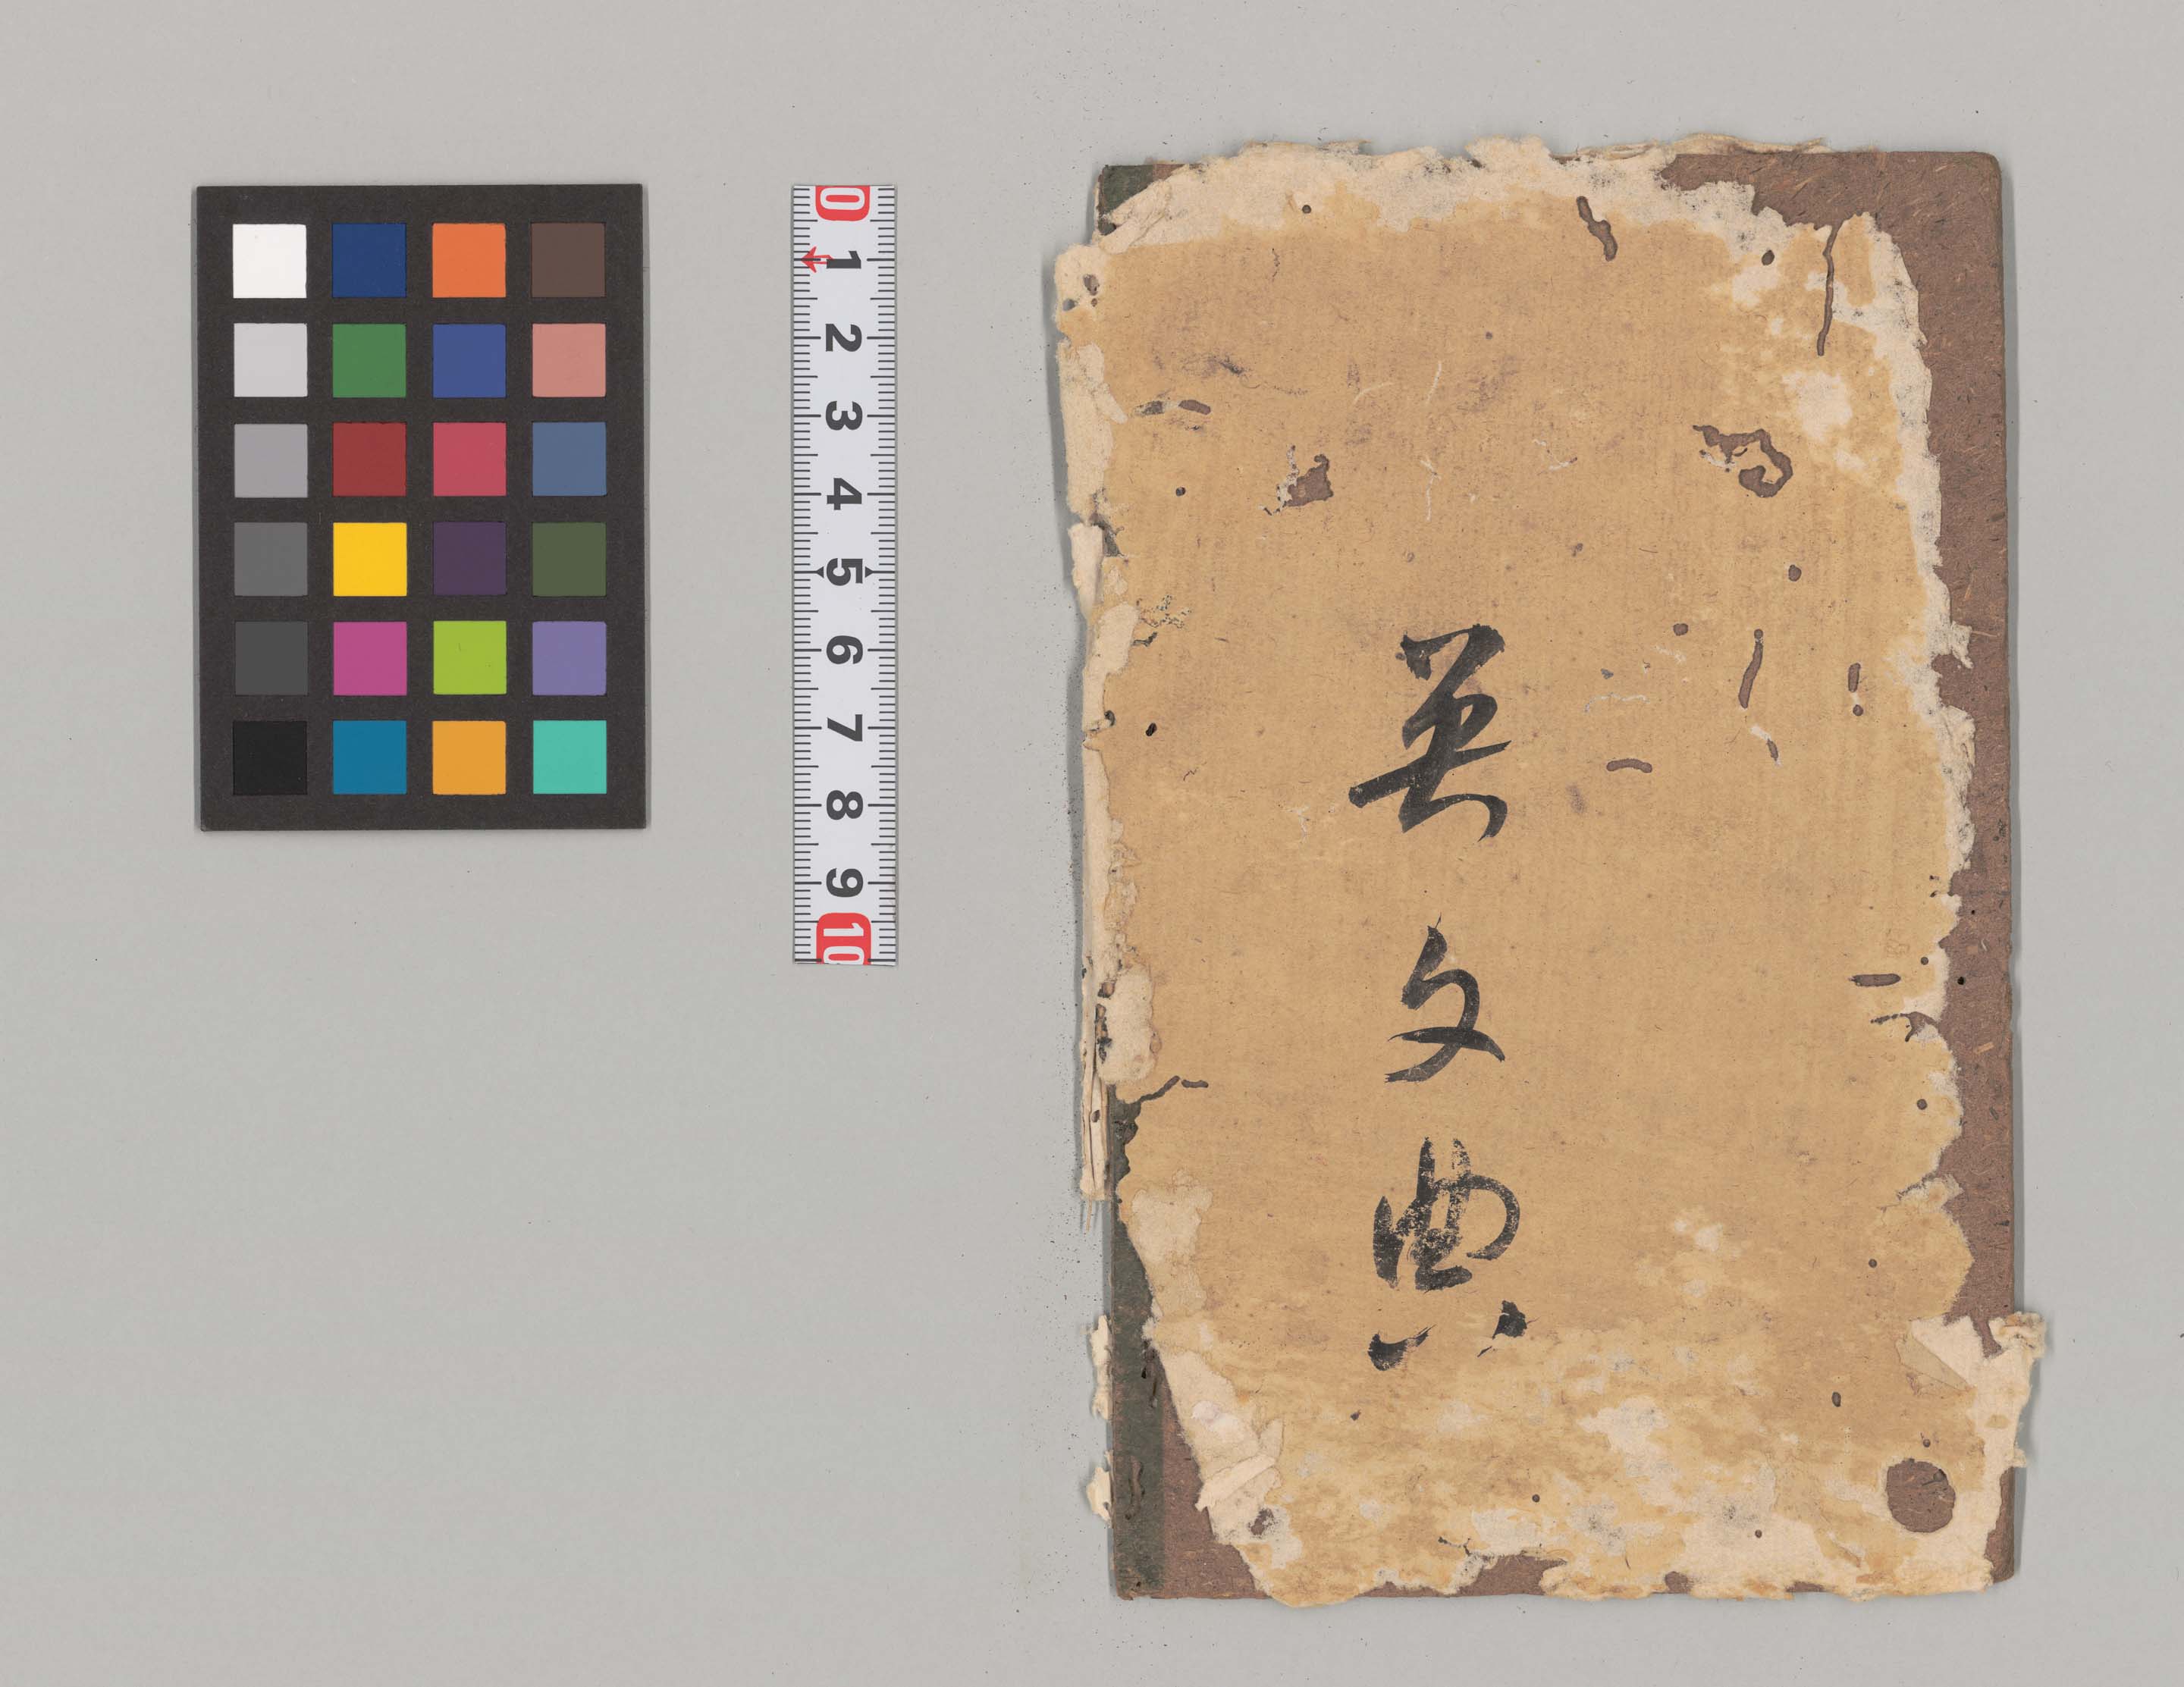 0
1
2
3
4
5
6
7
8
9
10
英文典